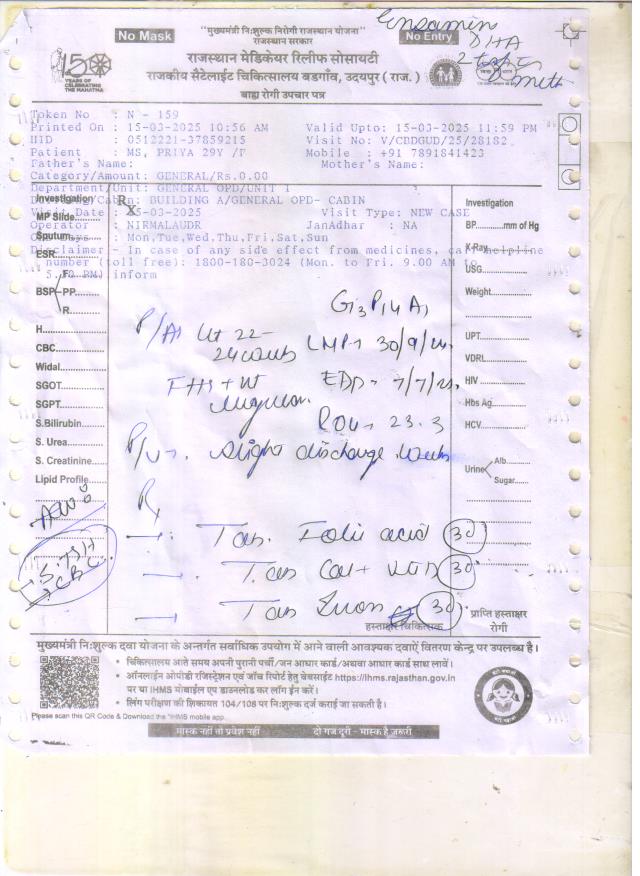 Ensamin
DHA
2 tspf
No Mask
"मुख्यमंत्री निःशुल्क निरोगी राजस्थान योजना"
राजस्थान सरकार
No Entry
राजस्थान मेडिकेयर रिलीफ सोसायटी
राजकीय सैटेलाईट चिकित्सालय बडगाँव, उदयपुर ( राज. )
बाह्य रोगी उपचार पत्र
150
YEARS OF
CELEBRATING
THE MAHATMA
Token No : N - 159
Printed On : 15-03-2025 10:56 AM Valid Upto: 15-03-2025 11:59 PM
HID : 0512221-37859215 Visit No: V/CBDGUD/25/28182
Patient : MS, PRIYA 29Y /F Mobile : +91 7891841423
Father's Name: Mother's Name:
Category/Amount: GENERAL/Rs.0.00
Department/Unit: GENERAL OPD/UNIT 1
BUILDING A/GENERAL OPD- CABIN
Visit Date : 15-03-2025 Visit Type: NEW CASE
Operator : NIRMALAUDR JanAadhar : NA
Days : Mon,Tue,Wed,Thu,Fri,Sat,Sun
Disclaimer - In case of any side effect from medicines, call helpline
number (toll free): 1800-180-3024 (Mon. to Fri. 9.00 AM to
5. 0 PM) inform
Rx
Investigation
MP Slide
Sputum
ESR
F
BSP PP
R
H
CBC
Widal
SGOT
SGPT
S.Bilirubin
S. Urea
S. Creatinine
Lipid Profile
Investigation
BP.........mm of Hg
X-Ray
USG
Weight
UPT
VDRL
HIV
Hbs Ag
HCV
Urine Alb.
Sugar
G3P1L1A1
P/A: Ut 22-
24 weeks LMP- 30/9/24
FHS + nt EDD- 7/7/25
POG- 23.3
P/V- slight discharge
S. TSH
CBC
Rx
Tab. Folic acid 30
Tab Cal+ Vit D 30
Tab Iron 30
हस्ताक्षर चिकित्सक
प्राप्ति हस्ताक्षर
रोगी
मुख्यमंत्री निःशुल्क दवा योजना के अन्तर्गत सर्वाधिक उपयोग में आने वाली आवश्यक दवाऐं वितरण केन्द्र पर उपलब्ध है।
• चिकित्सालय आते समय अपनी पुरानी पर्ची/जन आधार कार्ड/अथवा आधार कार्ड साथ लावें।
• ऑनलाईन ओपीडी रजिस्ट्रेशन एवं जाँच रिपोर्ट हेतु वेबसाईट https://ihms.rajasthan.gov.in
पर या IHMS मोबाईल एप डाउनलोड कर लॉग ईन करें।
• लिंग परीक्षण की शिकायत 104/108 पर निःशुल्क दर्ज कराई जा सकती है।
Please scan this QR Code & Download the "IHMS mobile app.
मास्क नहीं तो प्रवेश नहीं दो गज दूरी - मास्क है जरूरी